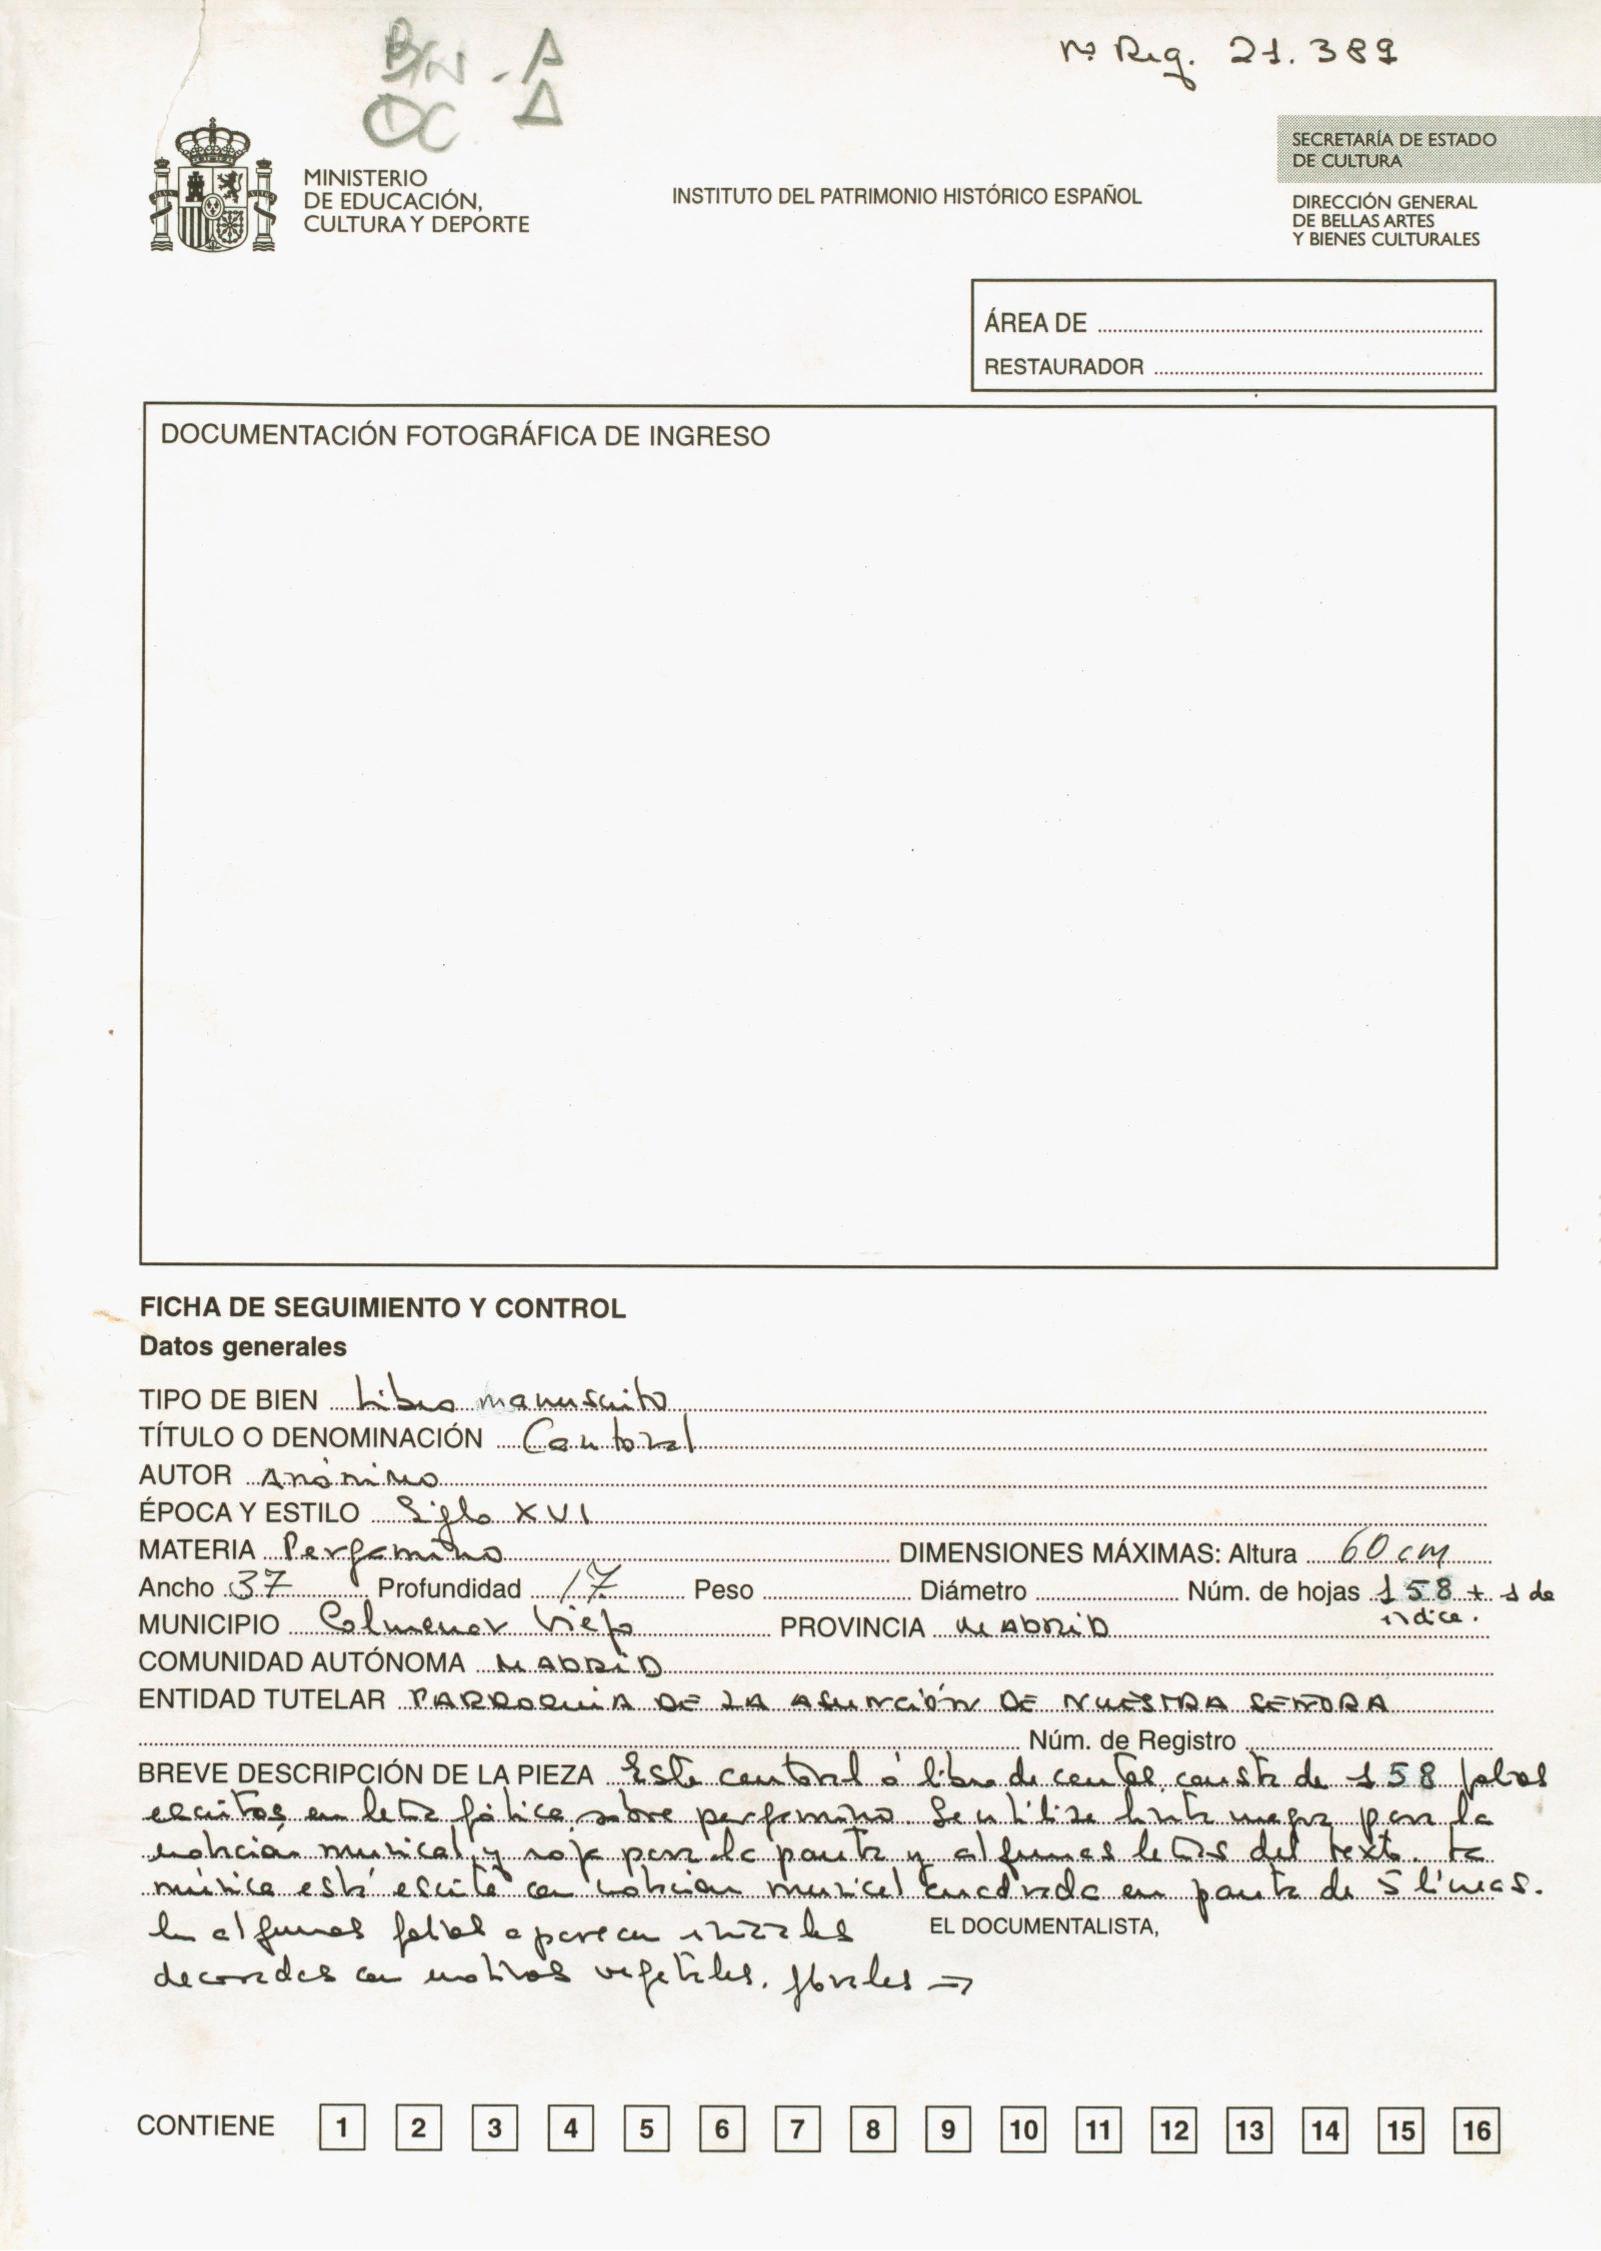 BN - A
OC Δ
Nº Reg. 21.389
SECRETARÍA DE ESTADO
DE CULTURA
MINISTERIO
DE EDUCACIÓN,
CULTURA Y DEPORTE
INSTITUTO DEL PATRIMONIO HISTÓRICO ESPAÑOL
DIRECCIÓN GENERAL
DE BELLAS ARTES
Y BIENES CULTURALES
ÁREA DE
RESTAURADOR
DOCUMENTACIÓN FOTOGRÁFICA DE INGRESO
FICHA DE SEGUIMIENTO Y CONTROL
Datos generales
TIPO DE BIEN Libro manuscrito
TÍTULO O DENOMINACIÓN Cantoral
AUTOR Anónimo
ÉPOCA Y ESTILO Siglo XVI
MATERIA Pergamino DIMENSIONES MÁXIMAS: Altura 60 cm
Ancho 37 Profundidad 17 Peso Diámetro Núm. de hojas 158 + 1 de
índice.
MUNICIPIO Colmenar Viejo PROVINCIA MADRID
COMUNIDAD AUTÓNOMA MADRID
ENTIDAD TUTELAR PARROQUIA DE LA ASUNCIÓN DE NUESTRA SEÑORA
Núm. de Registro
BREVE DESCRIPCIÓN DE LA PIEZA Este cantoral o libro de cantos, consta de 158 folios
escritos en letra gótica sobre pergamino. Se utiliza tinta negra para la
notación musical y roja para la pauta y algunas letras del texto. La
música está escrita con notación musical cuadrada en pauta de 5 líneas.
En algunos folios aparecen iniciales
EL DOCUMENTALISTA,
decoradas con motivos vegetales, florales →
CONTIENE 1 2 3 4 5 6 7 8 9 10 11 12 13 14 15 16